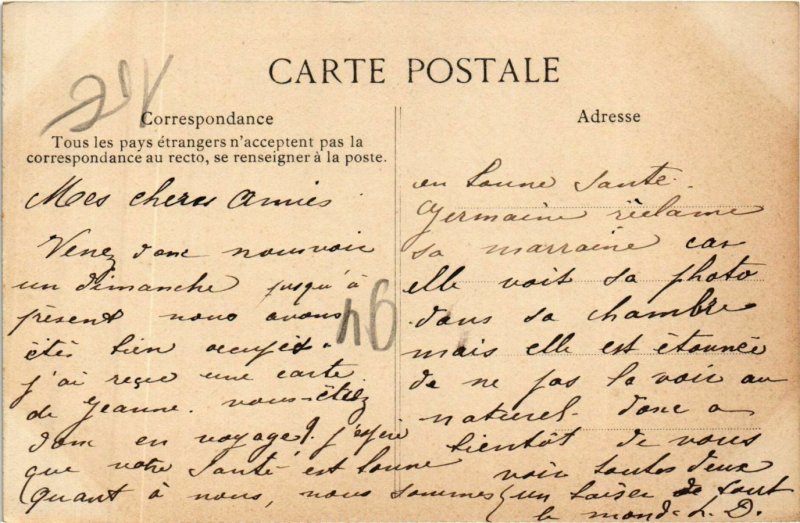 CARTE POSTALE
Correspondance
Tous les pays étrangers n'acceptent pas la
correspondance au recto, se renseigner à la poste.
Mes cheres Amies
Venez donc nous voir
un Dimanche jusqu'à
présent nous avons
étés bien occupés.
j'ai reçue une carte
de Jeanne. vous étiez
donc en voyage! j'espère
que votre Santé est bonne
Quant à nous, nous sommes
94
Adresse
en bonne Santé.
Germaine réclame
sa marraine car
elle voit sa photo
dans sa chambre
mais elle est étonnée
de ne pas la voir au
naturel. donc a
bientôt de vous
voir toutes deux
un baiser de tout
le monde L. D.